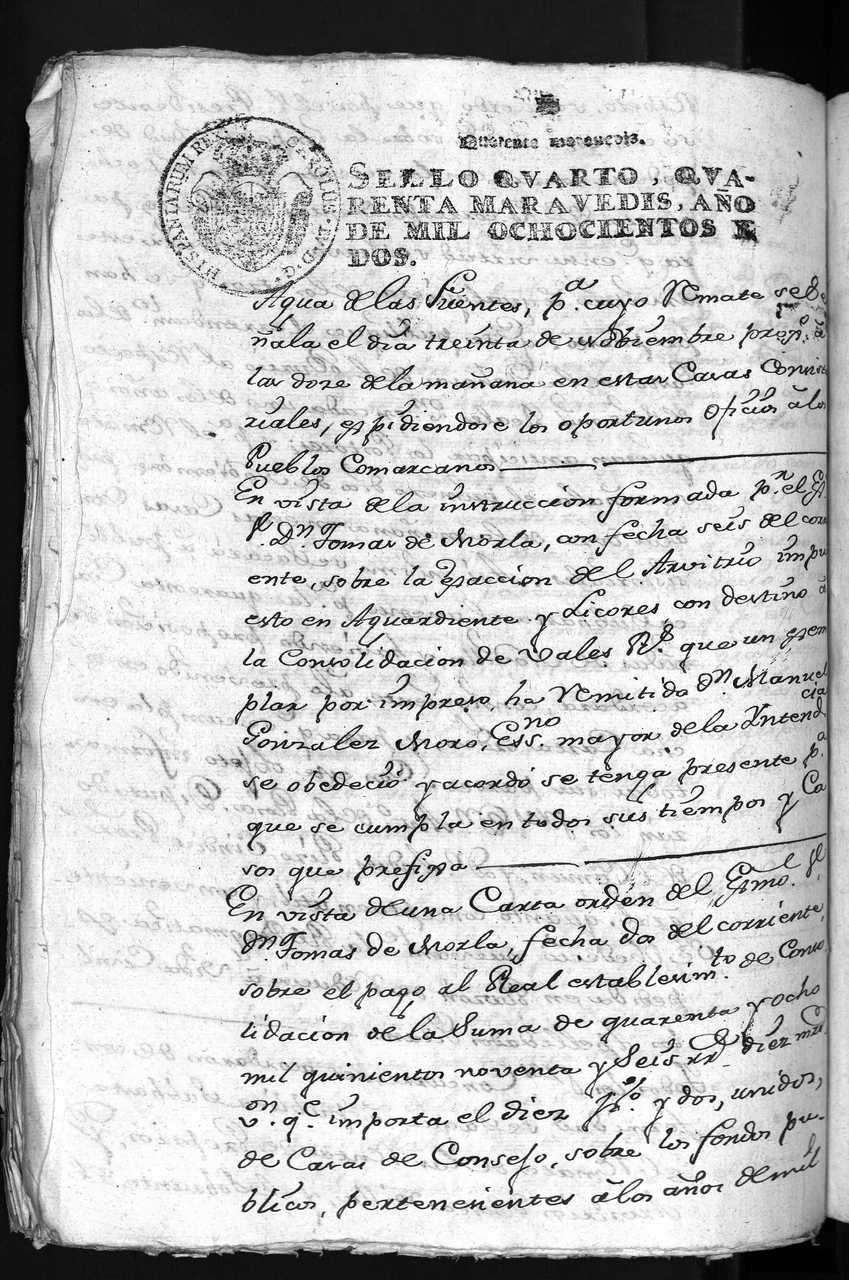 Quarenta maravedis.
HISPANIARUM REX CAROLUS IV D G
SELLO QVARTO, QVA-
RENTA MARAVEDIS, AÑO
DE MIL OCHOCIENTOS Y
DOS.
Agua de las Fuentes, pª cuyo Remate se
ñala el dia treinta de Nobiembre proxº a
las doze de la mañana en estas Casas Consisto
riales, expidiendose los oportunos Oficios a los
Pueblos Comarcanos
En vista de la instruccion formada pr el
Sr Dn Tomas de Morla, con fecha seis del corri
ente, sobre la exaccion del Arvitrio impu
esto en Aguardiente y Licores con destino a
la Consolidacion de Vales Rs que un exem
plar por impreso, ha remitido Dn Manuel
Gonzalez Moro, Essno mayor de la Yntendcia
se obedecio y acordó se tenga presente pª
que se cumpla en todos sus tiempos y Ca
sos que prefixa
En vista de una Carta orden del Exmo Sr
Dn Tomas de Morla, fecha dos del corriente,
sobre el pago al Real establecimto de Conso
lidacion de la Suma de quarenta y ocho
mil quinientos noventa y Seis rrs diez mrs
von qe importa el diez pº y dos, unidos,
de Casas de Consejo, sobre los fondos pu-
blicos, pertenecientes a los años de mil